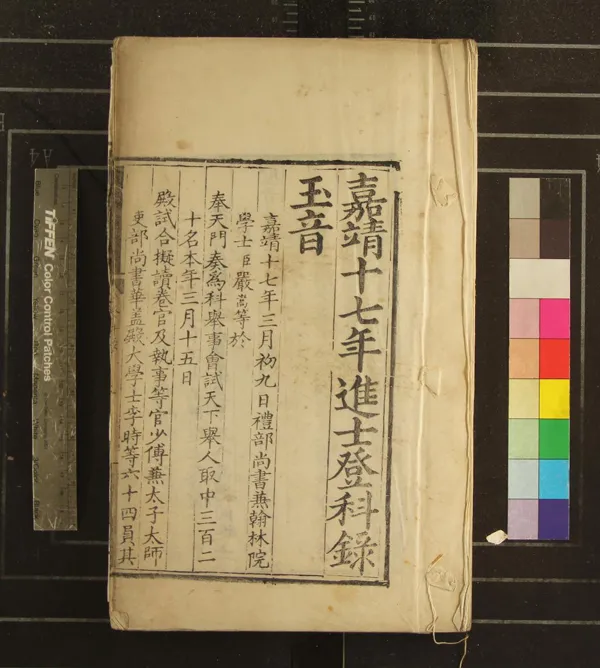 嘉靖十七年進士登科錄
玉音
嘉靖十七年三月初九日禮部尚書兼翰林院
學士臣嚴嵩等於
奉天門奏為科舉事會試天下舉人取中三百二
十名本年三月十五日
殿試合擬讀卷官及執事等官少傅兼太子太師
吏部尚書華蓋殿大學士李時等六十四員其
TIFFEN Color Control Patches
A4